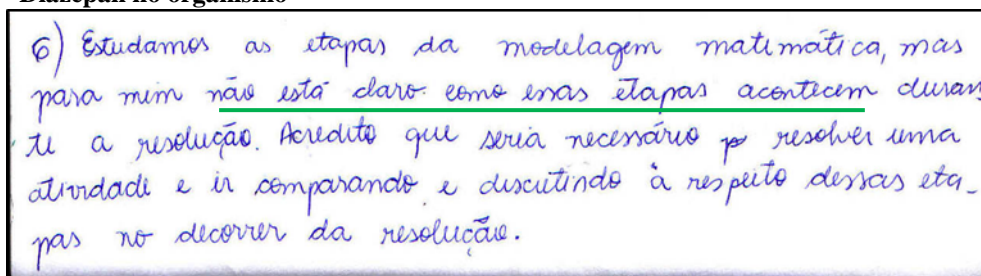 Diazepan no organismo
6) Estudamos as etapas da modelagem matemática, mas
para mim não está claro como essas etapas acontecem duran
te a resolução. Acredito que seria necessário resolver uma
atividade e ir comparando e discutindo à respeito dessas eta-
pas no decorrer da resolução.